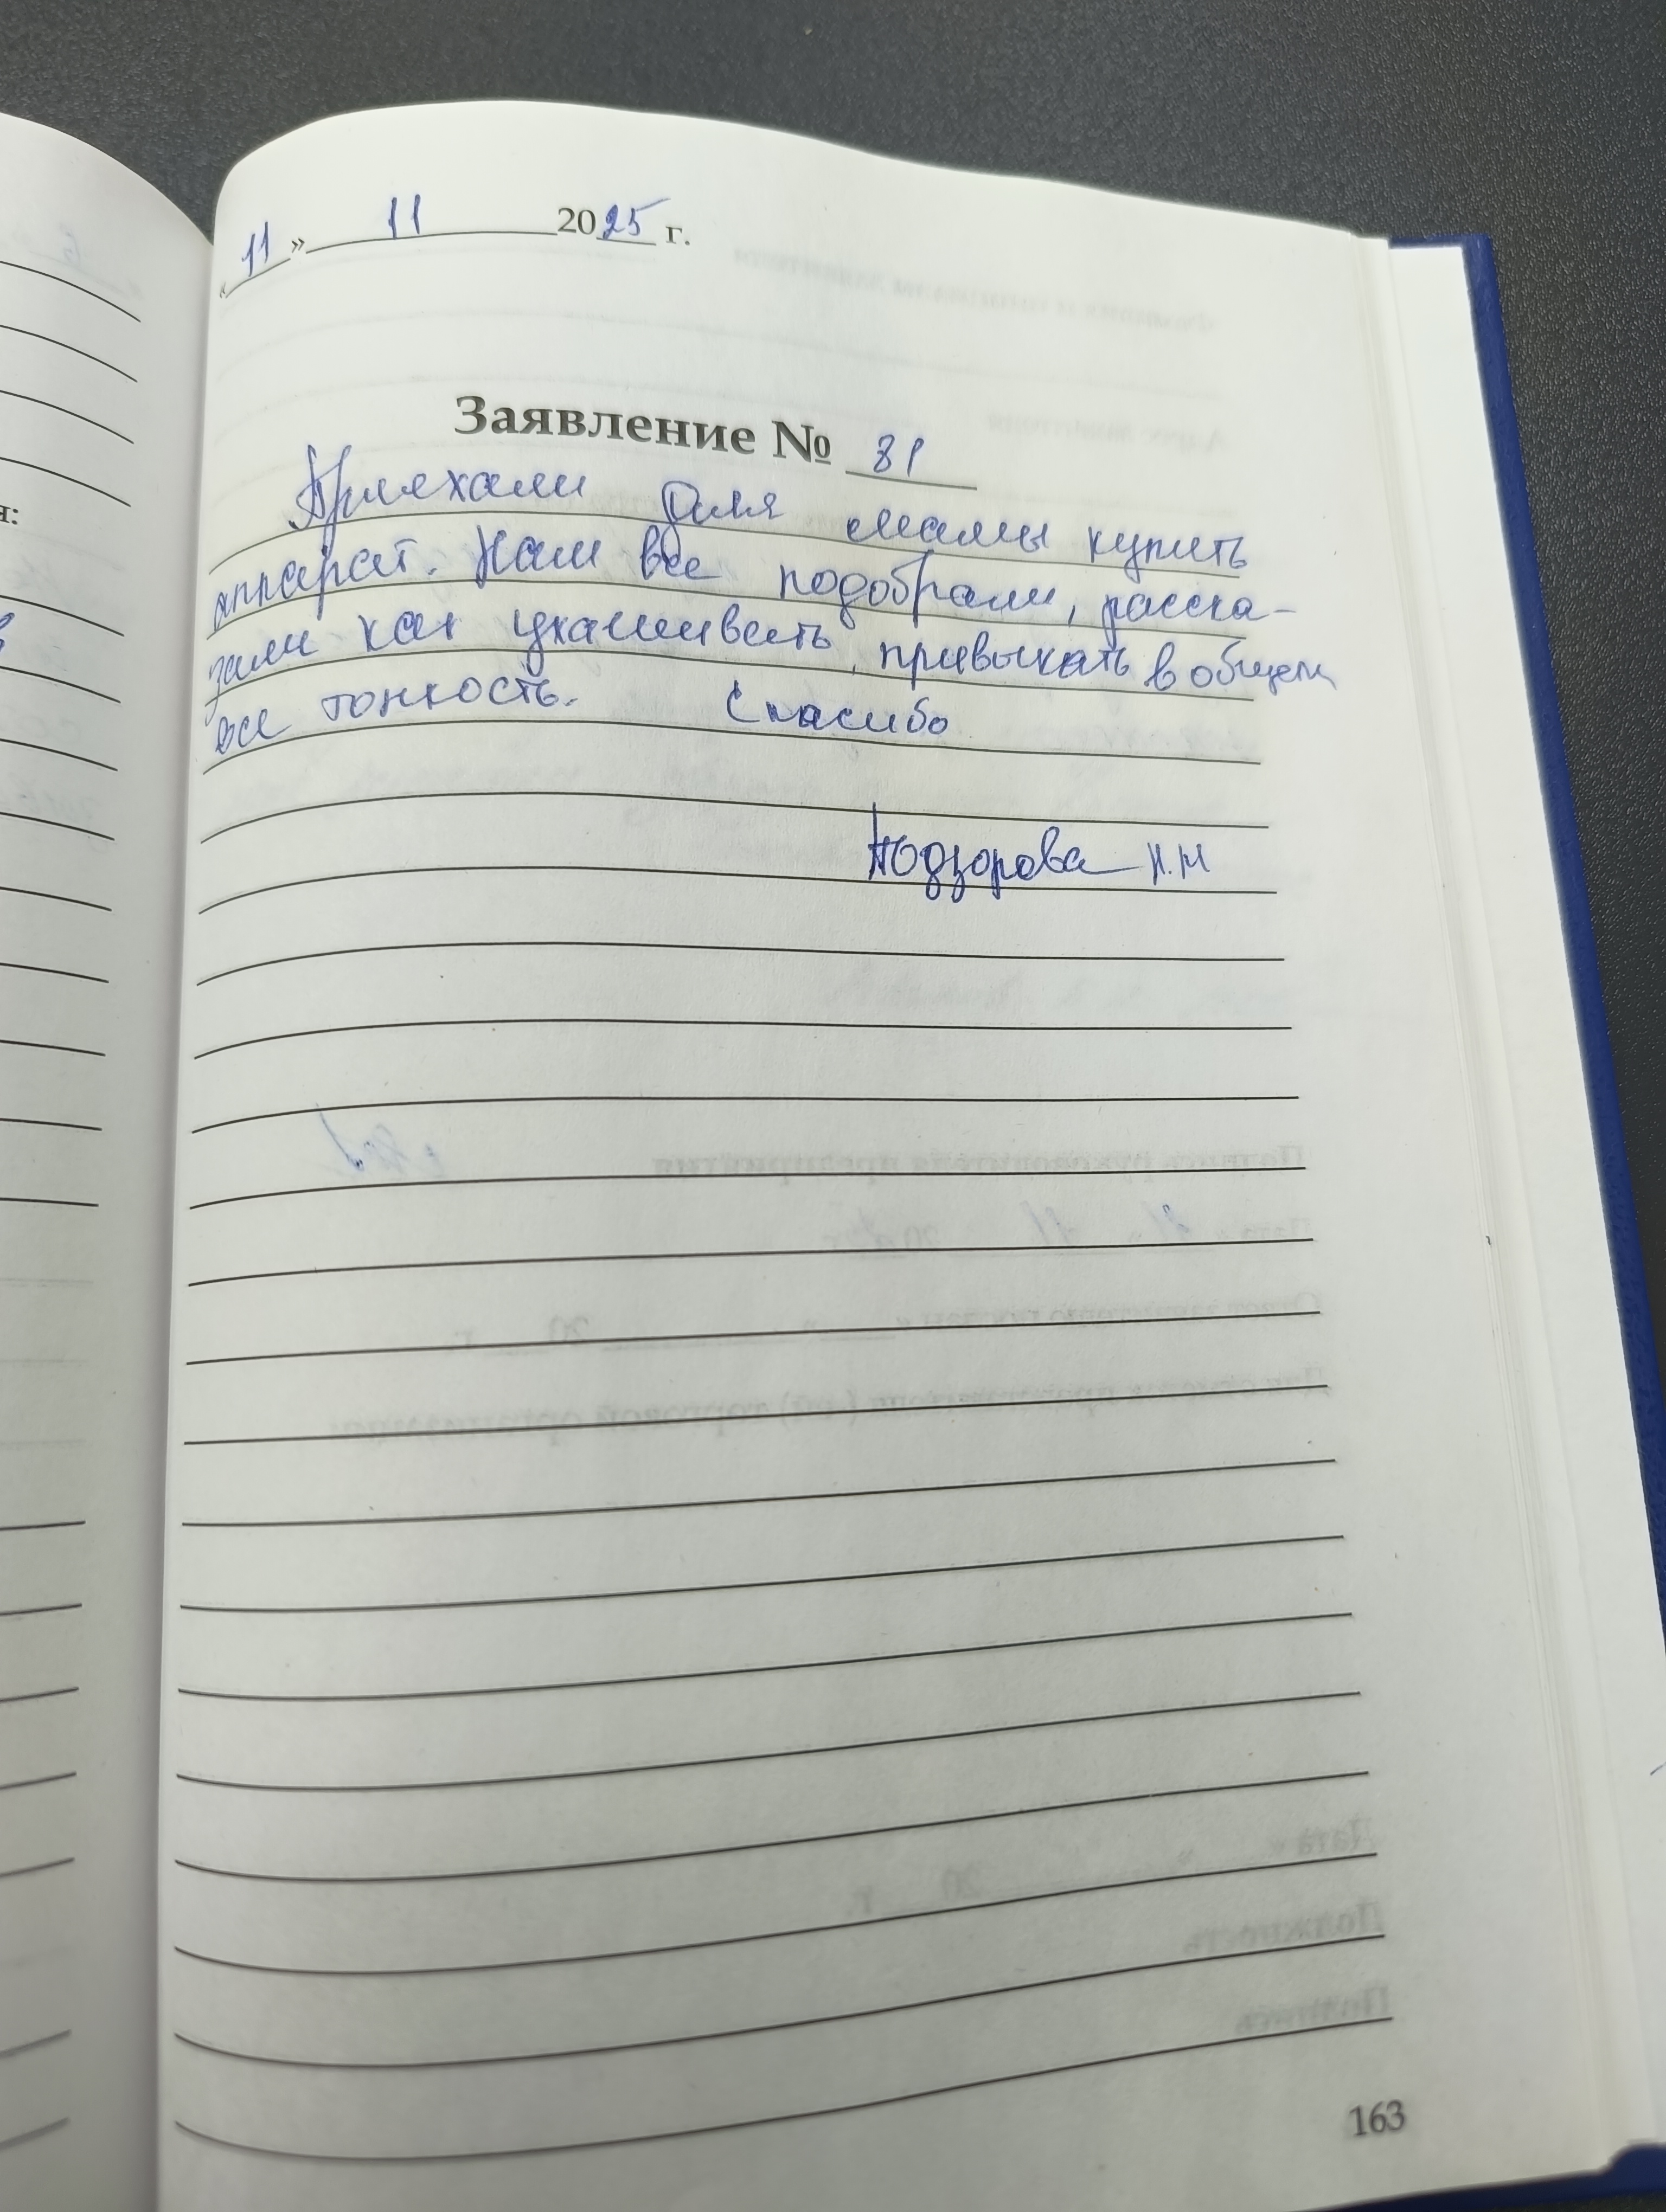 «11» 11 2025 г.
Заявление № 81
Приехали для мамы купить
аппарат. Нам все подобрали, расска-
зали как ухаживать, привыкать в общем
все тонкость. Спасибо
Подзорова Н.Н
163